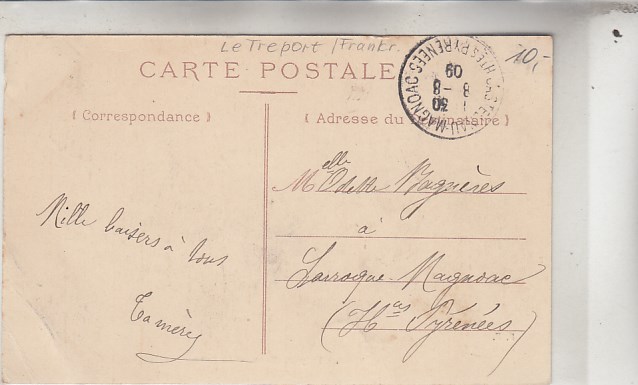 Le Treport / Frankr.
10,-
CARTE POSTALE
( Correspondance )
( Adresse du Destinataire )
CASTELNAU-MAGNOAC
HTES PYRENEES
30
8 - 8
09
Mille baisers à tous
Ta mère
Melle Odette Bagnères
à
Larroque Magnoac
(Htes Pyrénées)